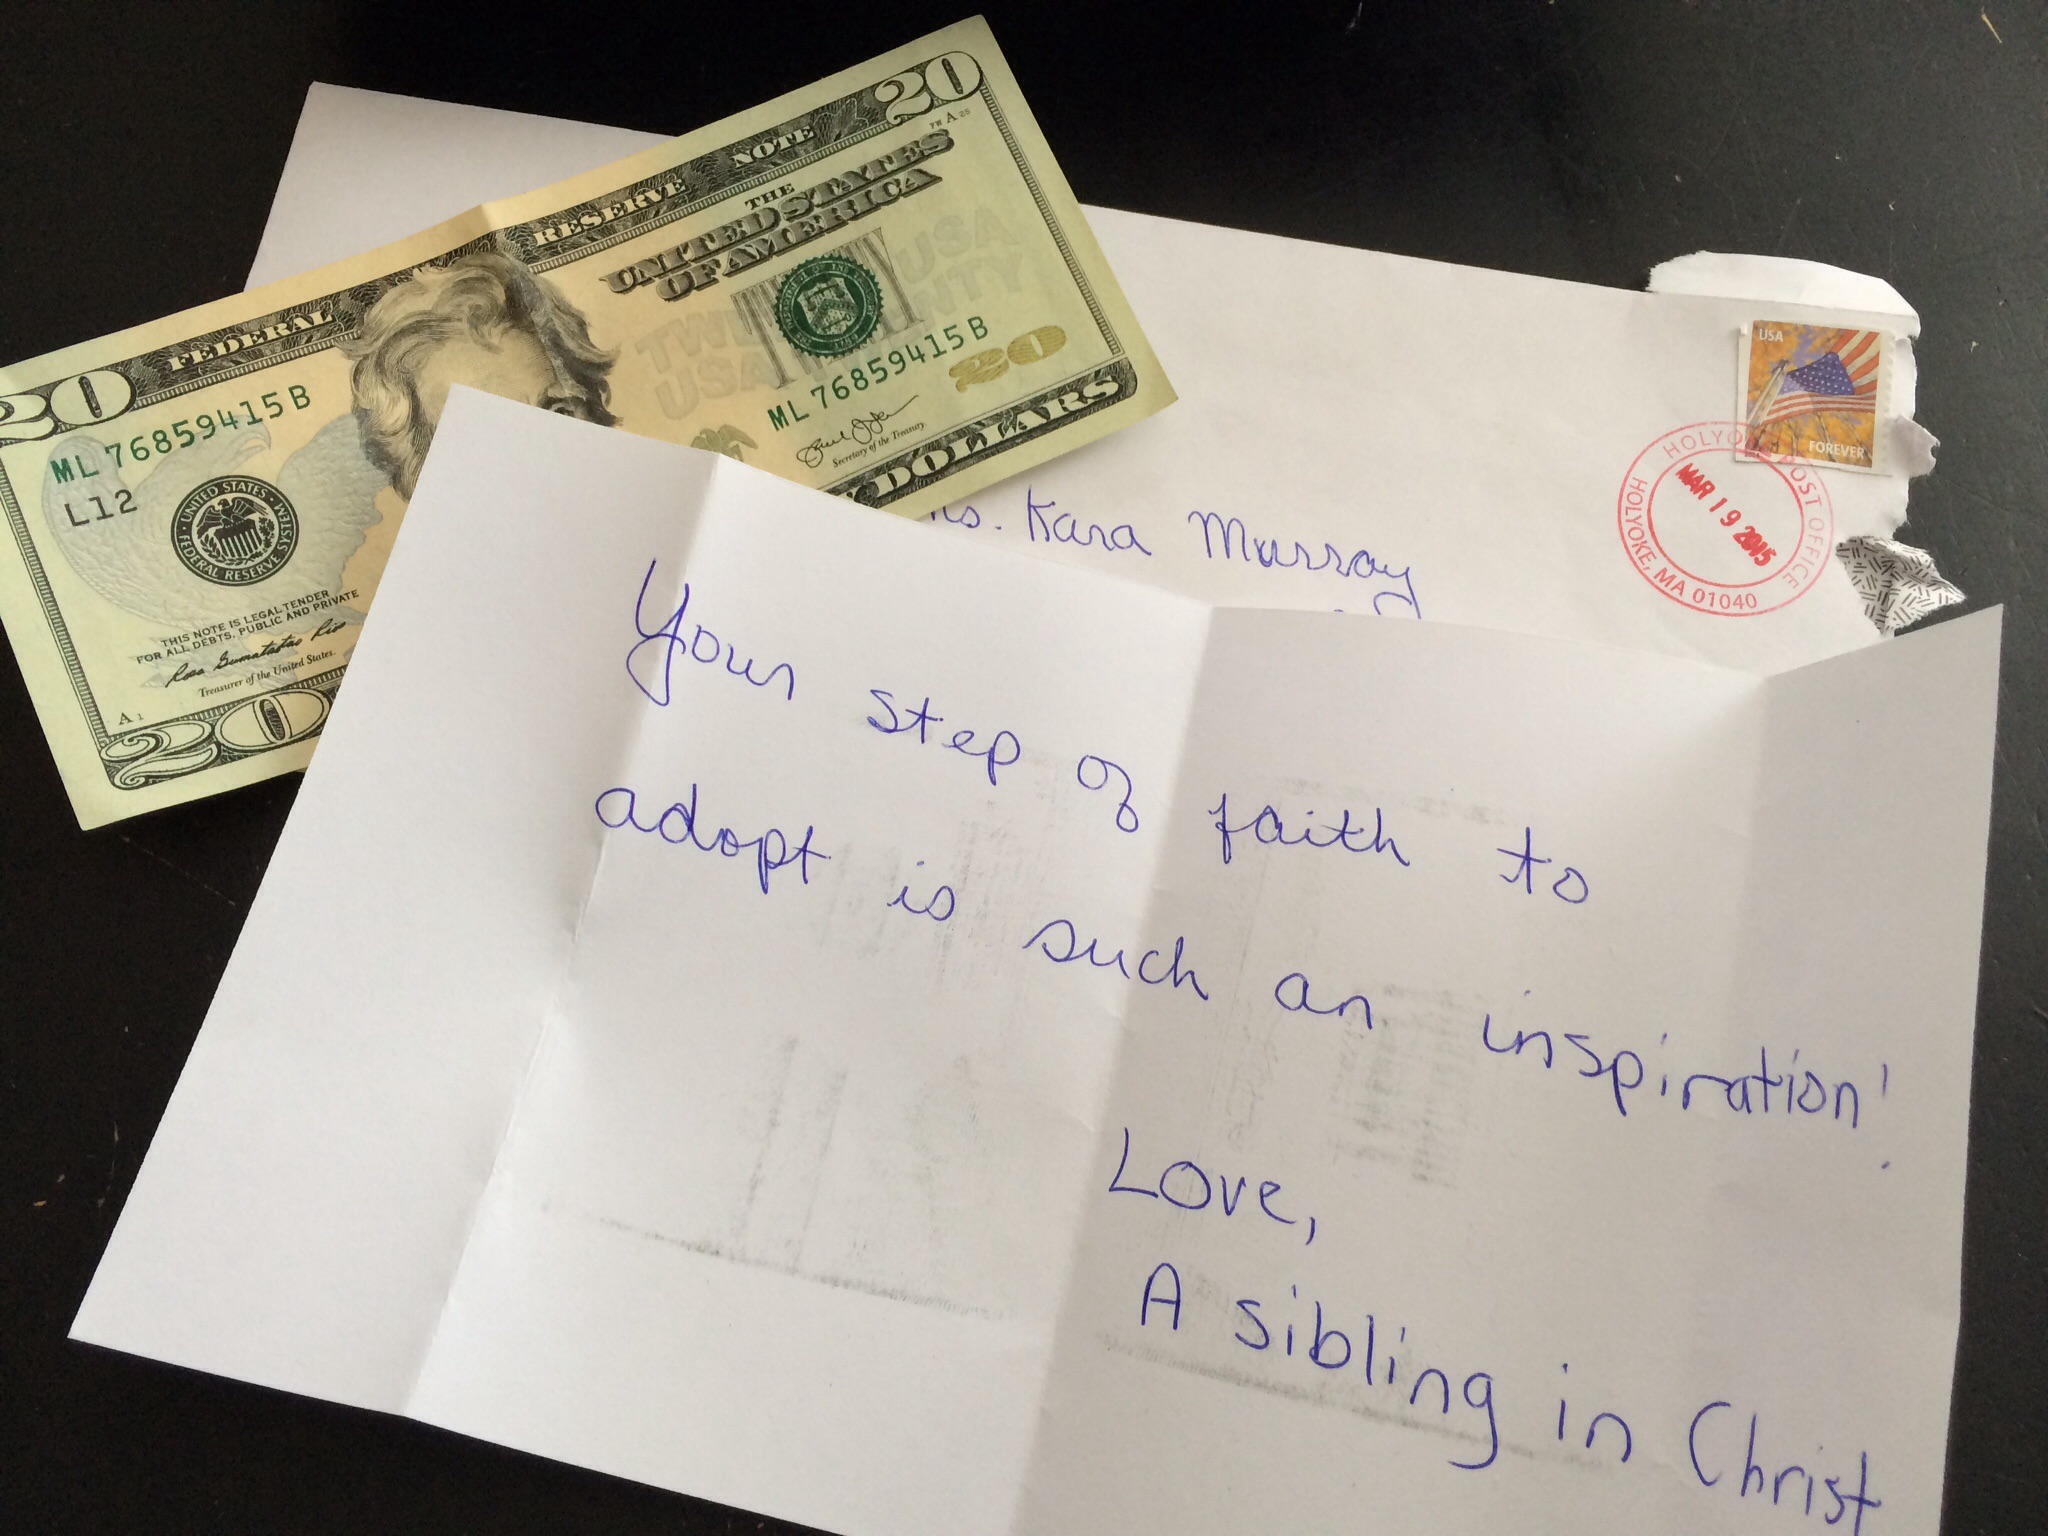 FEDERAL RESERVE NOTE
20
20
THE
UNITED STATES
OF AMERICA
FW A 25
ML 76859415 B
L12
UNITED STATES
FEDERAL RESERVE SYSTEM
THIS NOTE IS LEGAL TENDER
FOR ALL DEBTS, PUBLIC AND PRIVATE
Rosa Gumatastao Rios
Treasurer of the United States.
A 1
20
TWE USA
USA NTY
ML 76859415 B
20
Secretary of the Treasury.
DOLLARS
USA
FOREVER
HOLYOKE POST OFFICE
MAR 19 2015
HOLYOKE, MA 01040
Kara Murray
Your step of faith to
adopt is such an inspiration!
Love,
A sibling in Christ